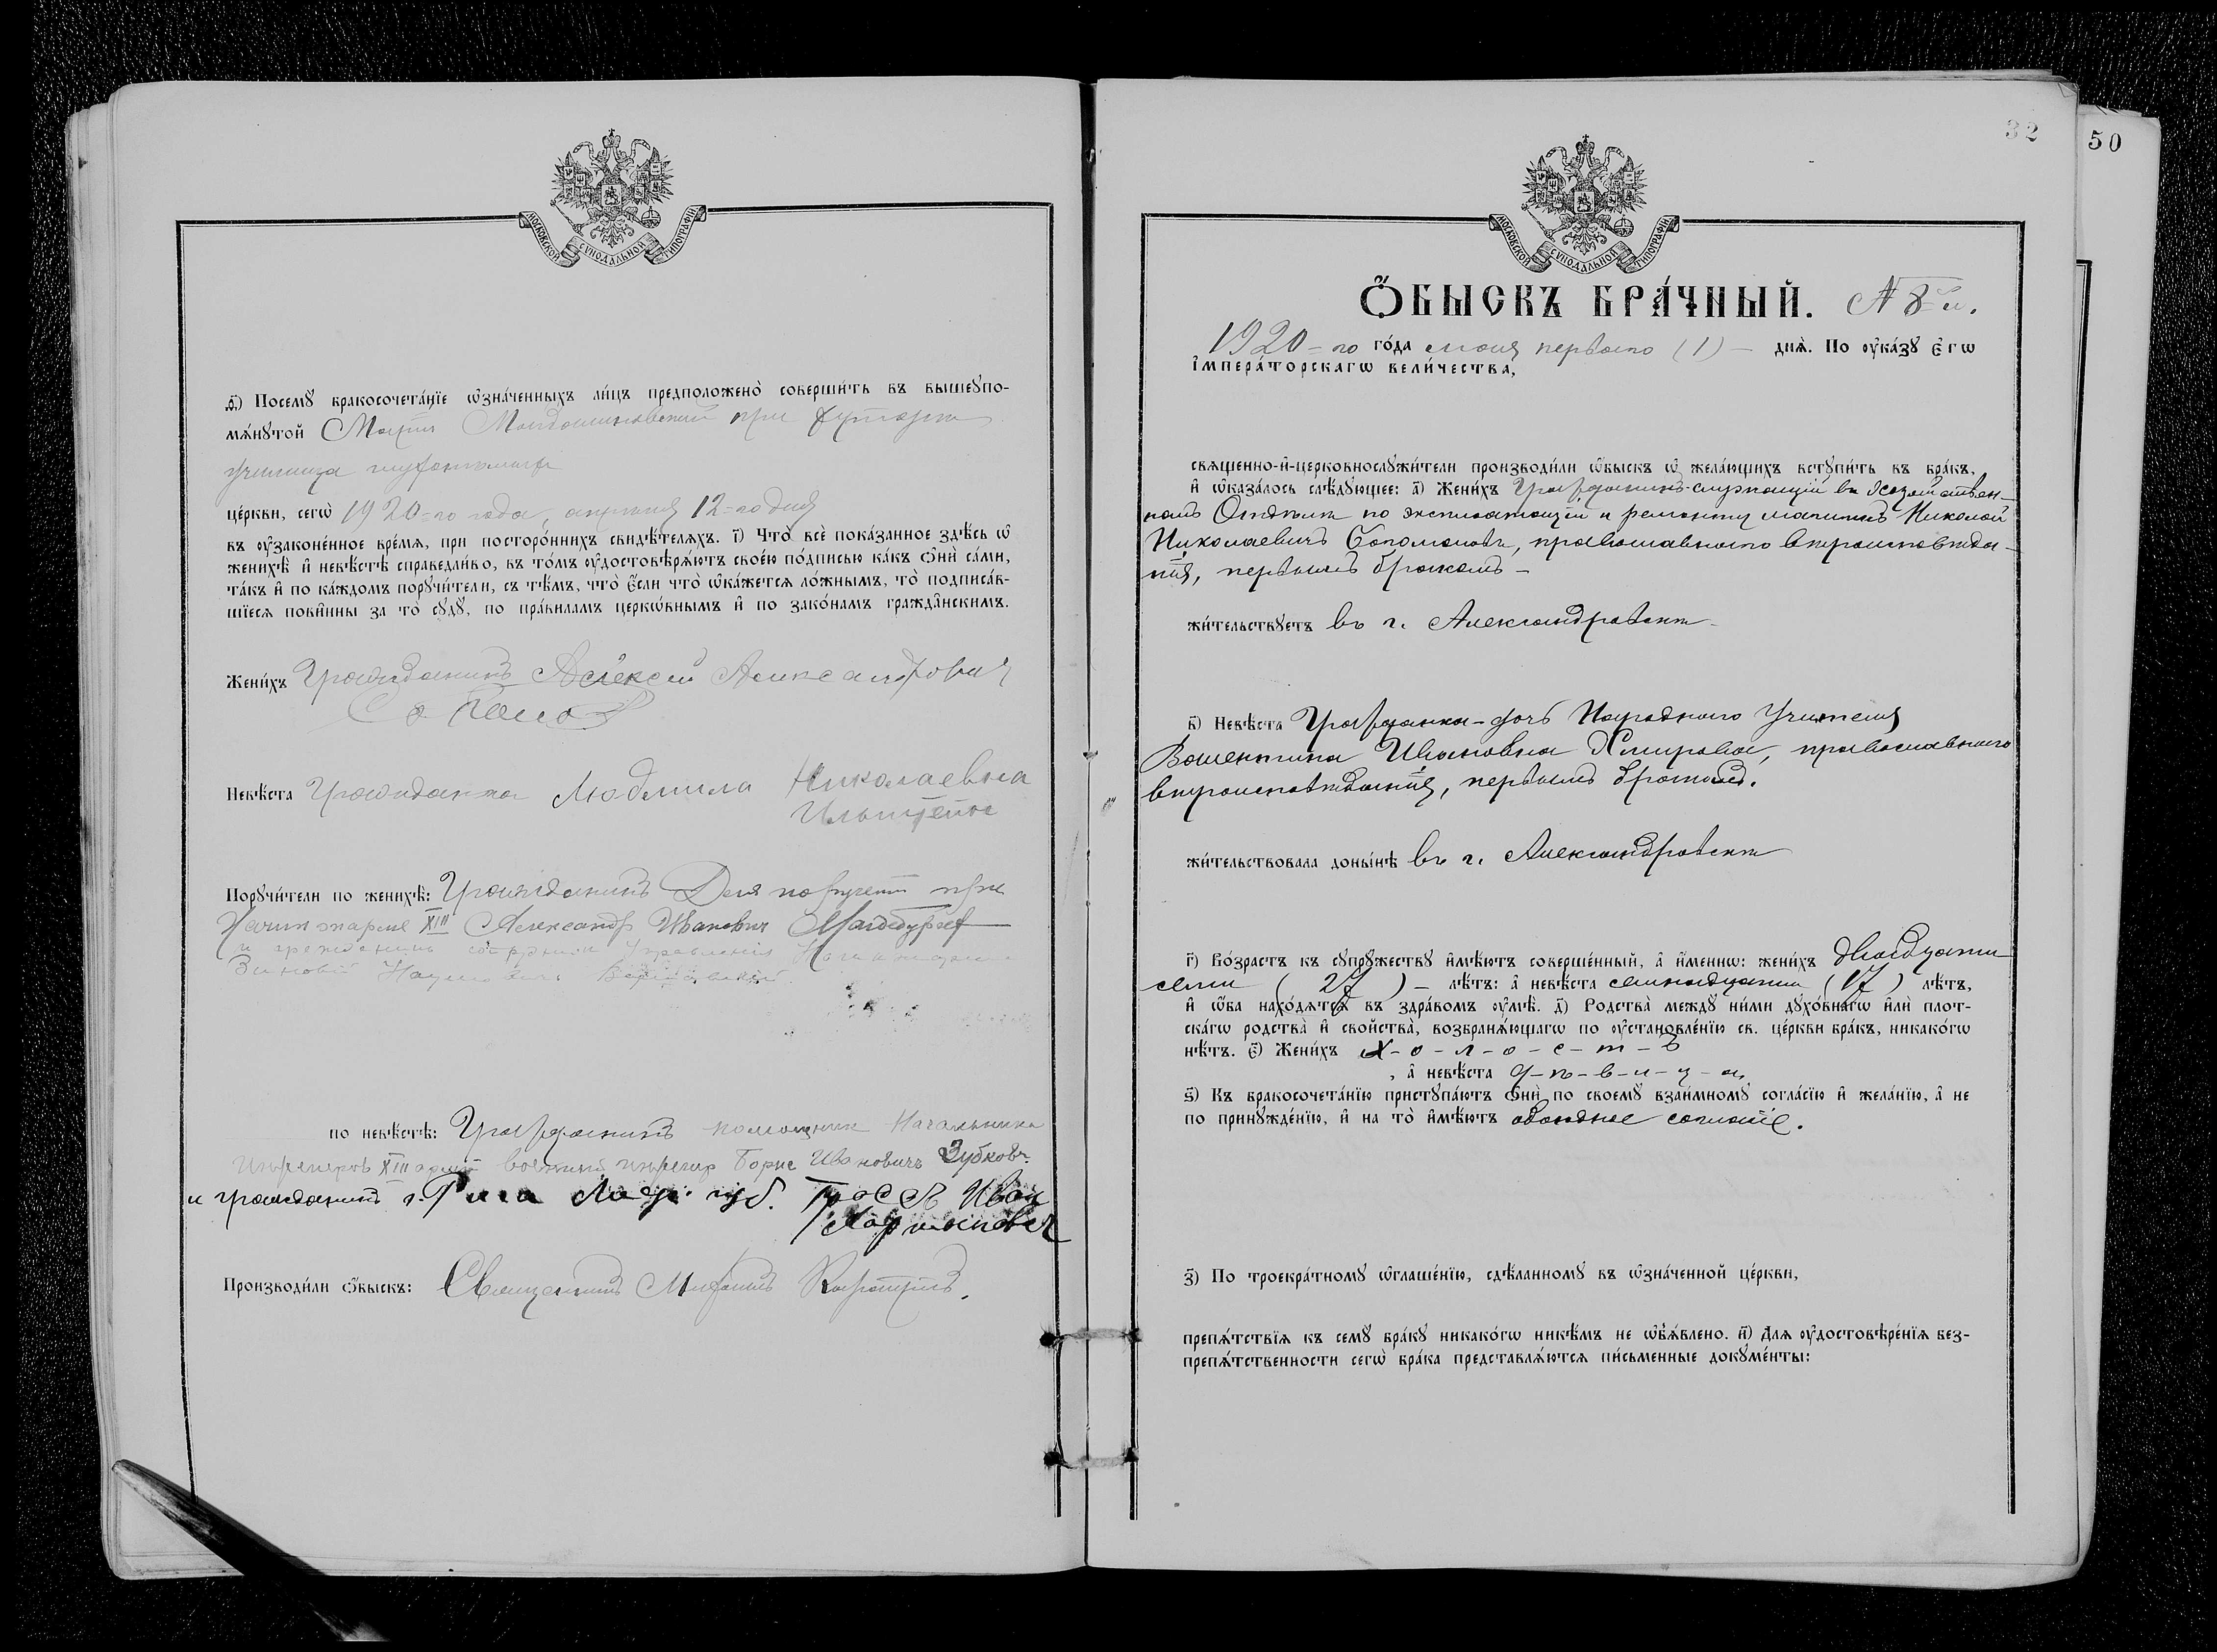 МОСКОВСКОЙ СѴНОДАЛЬНОЙ ТИПОГРАФІИ
ѳ҃) Посемꙋ̀ бракосочета́нїе ѡ҆зна́ченныхъ ли́цъ предположено̀ соверши́ть въ вышеꙋпо-
мѧ́нꙋтой Марiи Магдалиновской при хуторе
училища глухонемых
це́ркви, сегѡ̀ 1920=го года, апреля 12=го дня
въ ᲂу҆зако́ненное вре́мѧ, при посторо́ннихъ свидѣ́телѧхъ. і҃) Что̀ всѐ пока́занное здѣ́сь ѡ҆
женихѣ̀ и҆ невѣ́стѣ справедли́во, въ то́мъ ᲂу҆достовѣрѧ́ютъ свое́ю по́дписью ка́къ ѻ҆нѝ са́ми,
та́къ и҆ по ка́ждомъ порꙋчи́тели, съ тѣ́мъ, что̀ є҆́сли что̀ ѡ҆ка́жетсѧ ло́жнымъ, то̀ подписа́в-
шїесѧ пови́нны за то̀ сꙋдꙋ̀, по пра́виламъ церкѡ́внымъ и҆ по зако́намъ гражда́нскимъ.
Жени́хъ Гражданинъ Алексей Александрович
Невѣ́ста Гражданка Людмила Николаевна
Порꙋчи́тели по женихѣ̀: Гражданинъ Для поручений при
XIII Александр Иванович
и гражданин сотрудник Управления
Зиновий
по невѣ́стѣ: Гражданинъ помощник Начальника
инженеров XIII армии военный инженер Борис Иванович Зубков
и гражданинъ г. Рига губ. Иван
Производи́ли ѻ҆́быскъ: Священникъ
32
50
МОСКОВСКОЙ СѴНОДАЛЬНОЙ ТИПОГРАФІИ
Ѻ҆́БЫСКЪ БРА́ЧНЫЙ. № 8-й.
1920=го го́да мая первого (1) — днѧ̀. По ᲂу҆ка́зꙋ є҆гѡ̀
і҆мпера́торскагѡ вели́чества,
свѧще́нно-и҆-церковнослꙋжи́тели производи́ли ѻ҆́быскъ ѡ҆ жела́ющихъ встꙋпи́ть въ бра́къ,
и҆ ѡ҆каза́лось слѣ́дꙋющее: а҃) Жени́хъ Гражданинъ-служащiй въ Хозяйствен-
номъ Отделе по эксплоатацiи и ремонту машинъ Николай
Николаевичъ, православного вероисповеда-
нiя, первымъ бракомъ —
жи́тельствꙋетъ въ г. Александровске
в҃) Невѣ́ста Гражданка-дочь Народного Учителя
Валентина Ивановна Хмирова, православного
вероисповеданiя, первымъ бракомъ.
жи́тельствовала доны́нѣ въ г. Александровске
г҃) Во́зрастъ къ сꙋпрꙋ́жествꙋ и҆мѣ́ютъ соверше́нный, а҆ и҆́менно: жени́хъ двадцати
семи (27) — лѣ́тъ: а҆ невѣ́ста семнадцати (17) лѣ́тъ,
и҆ ѻ҆́ба нахо́дѧтсѧ въ здра́вомъ ᲂу҆мѣ̀. д҃) Родства̀ междꙋ̀ ни́ми дꙋхо́внагѡ и҆лѝ плот-
ска́гѡ родства̀ и҆ сво́йства̀, возбранѧ́ющагѡ по ᲂу҆становле́нїю св. це́ркви бра́къ, никако́гѡ
нѣ́тъ. є҃) Жени́хъ х-о-л-о-с-т-ъ
, а҆ невѣ́ста д-е-в-и-ц-а,
ѕ҃) Къ бракосочета́нїю пристꙋпа́ютъ ѻ҆нѝ по своемꙋ̀ взаи́мномꙋ согла́сїю и҆ жела́нїю, а҆ не
по принꙋжде́нїю, и҆ на то̀ и҆мѣ́ютъ обоюдное согласiе.
з҃) По троекра́тномꙋ ѡ҆глаше́нїю, сдѣ́ланномꙋ въ ѡ҆зна́ченной це́ркви,
препѧ́тствїѧ къ семꙋ̀ бра́кꙋ никако́гѡ никѣ́мъ не ѡ҆б̾ѧ́влено. и҃) Для ᲂу҆достовѣре́нїѧ без-
препѧ́тственности сегѡ̀ бра́ка представлѧ́ютсѧ пи́сьменные докꙋме́нты: